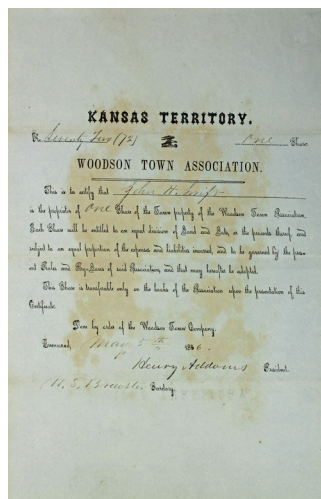 KANSAS TERRITORY.
No Seventy Two (72) One Share
WOODSON TOWN ASSOCIATION.
This is to certify that John H.
is the proprietor of One Share of the Town property of the Woodson Town Association.
Each Share will be entitled to an equal division of Land and Lots, or the proceeds thereof and
subject to an equal proportion of the expenses and liabilities incurred, and to be governed by the pres-
ent Rules and Bye-Laws of said Association, and that may hereafter be adopted.
This Share is transferable only on the books of the Association upon the presentation of this
Certificate.
Done by order of the Woodson Town Company.
Tecumseh, May 5th 1856.
Henry Addams President.
Secretary.